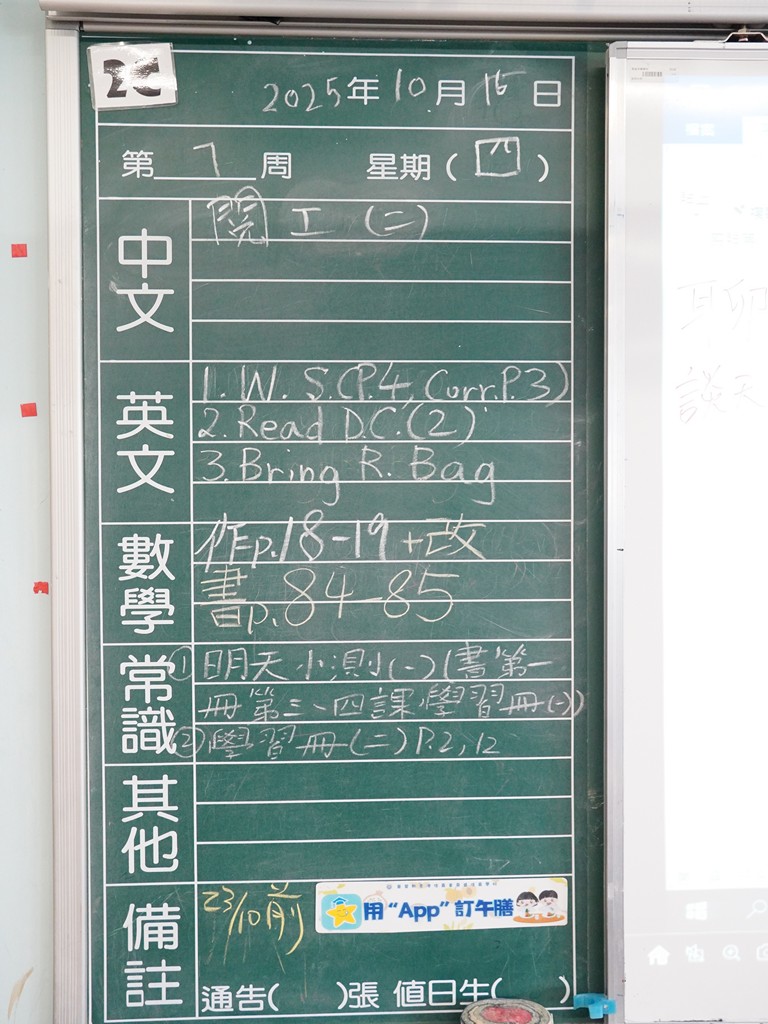 2C
2025年10月16日
第7周 星期(四)
中文
閱工(二)
英文
1. W.S.(P.4, Corr.P.3)
2. Read D.C.(2)
3. Bring R. Bag
數學
作p.18-19+改
書p.84-85
常識
①明天小測(一)(書第一
冊第三、四課,學習冊(一))
②學習冊(二)P.2,12
其他
備註
23/10前
用“App”訂午膳
通告( )張 值日生( )
聊
談天